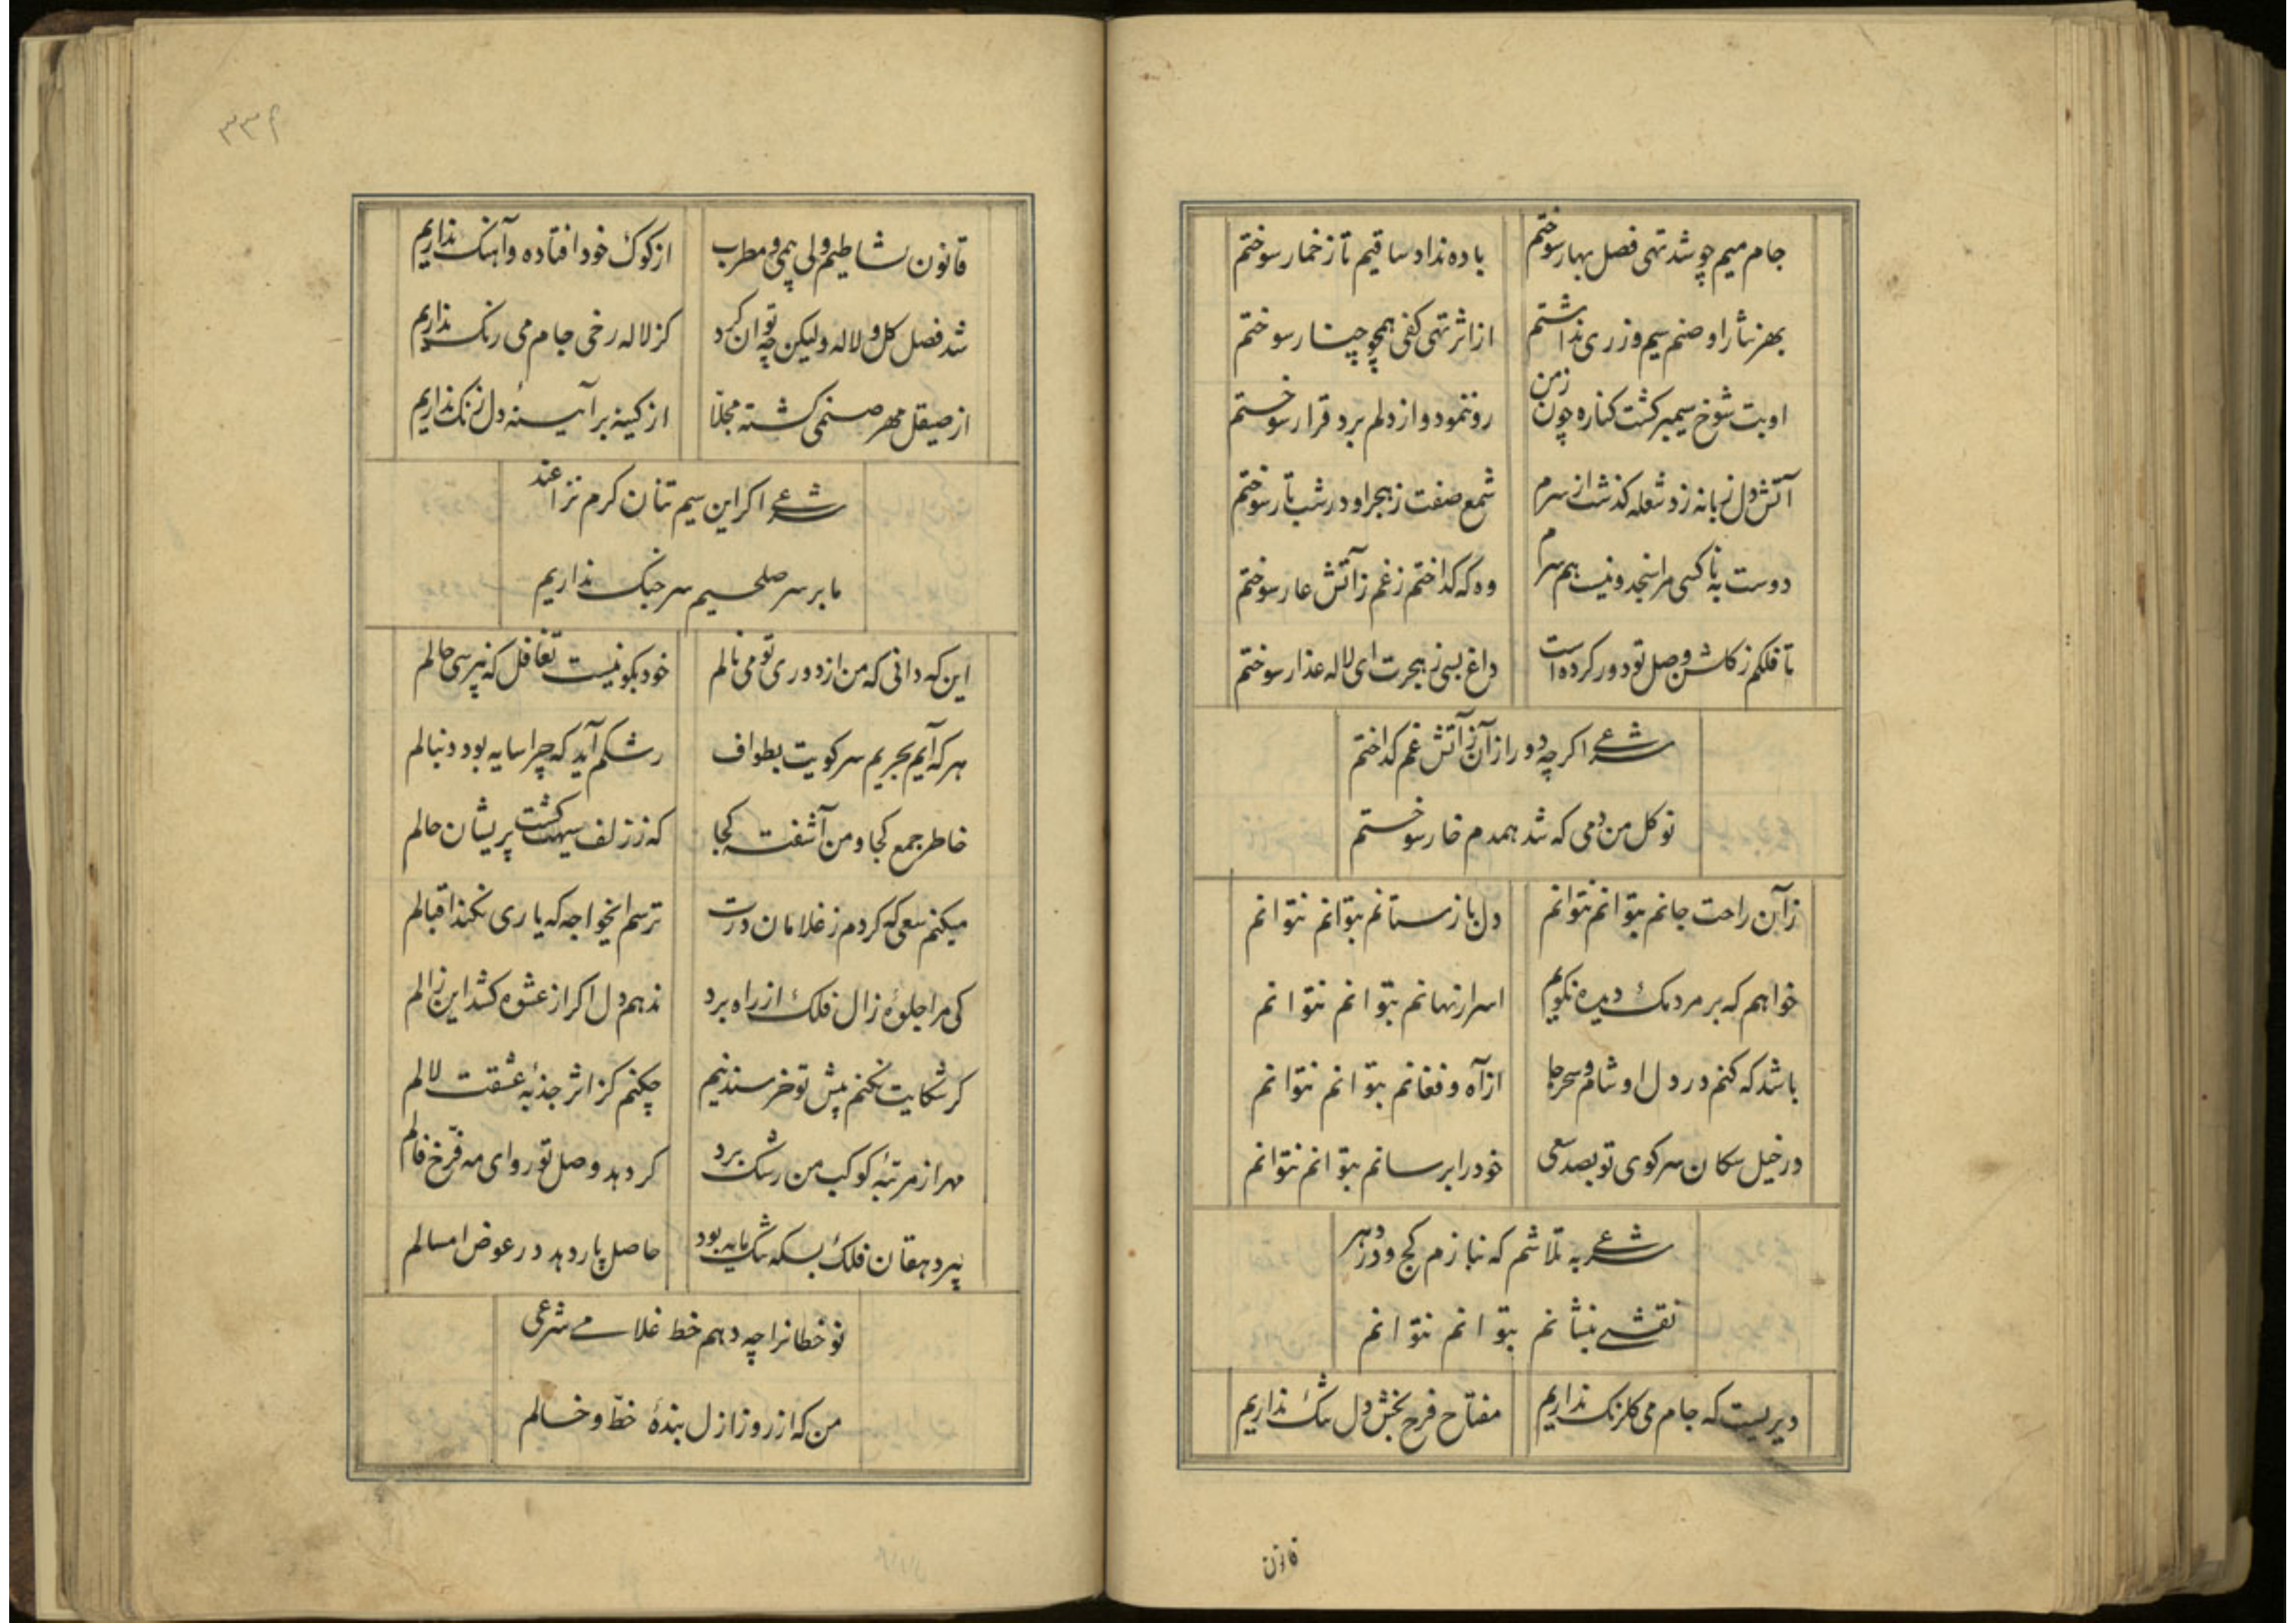 جام میم چو شد تهی فصل بهار سوختم باده نداد ساقیم تا ز خمار سوختم
بهر نثار او صنم سیم و زری نداشتم از اثر تهی کفی همچو چنار سوختم
او بت شوخ سیمبر کشت کناره چون ز من رو ننمود و از دلم برد قرار سوختم
آتش دل زبانه زد شعله کذشت از سرم شمع صفت ز هجر او در شب تار سوختم
دوست به ناکسی مرا سنجد و نیست همسرم وه که کداختم ز غم ز آتش عار سوختم
تا فلکم ز کلشن وصل تو دور کرده است داغ بسی ز هجرت ای لاله عذار سوختم
شرعی اکرچه دور از آن ز آتش غم کداختم
نوکل من دمی که شد همدم خار سوختم
ز آن راحت جانم بتوانم نتوانم دل باز ستانم بتوانم نتوانم
خواهم که بر مردمک دیده نکویم اسرار نهانم بتوانم نتوانم
باشد که کنم در دل او شام و سحر جا از آه و فغانم بتوانم نتوانم
در خیل سکان سر کوی تو بصد سعی خود را برسانم بتوانم نتوانم
شرعی به تلاشم که نبازم کج و در دهر
نقشی بنشانم بتوانم نتوانم
دیریست که جام می کلرنک نداریم مفتاح فرح بخش دل تنک نداریم
قانون
۳۳۴
قانون نشاطیم ولی بی می و مطرب از کوک خود افتاده و آهنک نداریم
شد فصل کل و لاله ولیکن چه توان کرد کز لاله رخی جام می رنک نداریم
از صیقل مهر صنمی کشته مجلّا از کینه بر آیینهٔ دل زنک نداریم
شرعی اکر این سیم تنان کرم نزاعند
ما بر سر صلحیم سر جنک نداریم
این که دانی که من از دوری تو می نالم خود بکو نیست تغافل که نپرسی حالم
هر که آیم بحریم سر کویت بطواف رشکم آید که چرا سایه بود دنبالم
خاطر جمع کجا و من آشفته کجا که ز زلف سیهت کشت پریشان حالم
میکنم سعی که کردم ز غلامان درت ترسم ایخواجه که یاری نکند اقبالم
کی مرا جلوهٔ زال فلک از راه برد ندهم دل اکر از عشوه کشد این زالم
کر شکایت نکنم پیش تو خرسند نیم چکنم کز اثر جذبهٔ عشقت لالم
مهر از مرتبهٔ کوکب من رشک برد کر دهد وصل تو رو ای مه فرّخ فالم
پیر دهقان فلک بسکه تنک مایه بود حاصل پار دهد در عوض امسالم
نو خطانرا چه دهم خط غلامی شرعی
من که از روز ازل بندهٔ خطّ و خالم